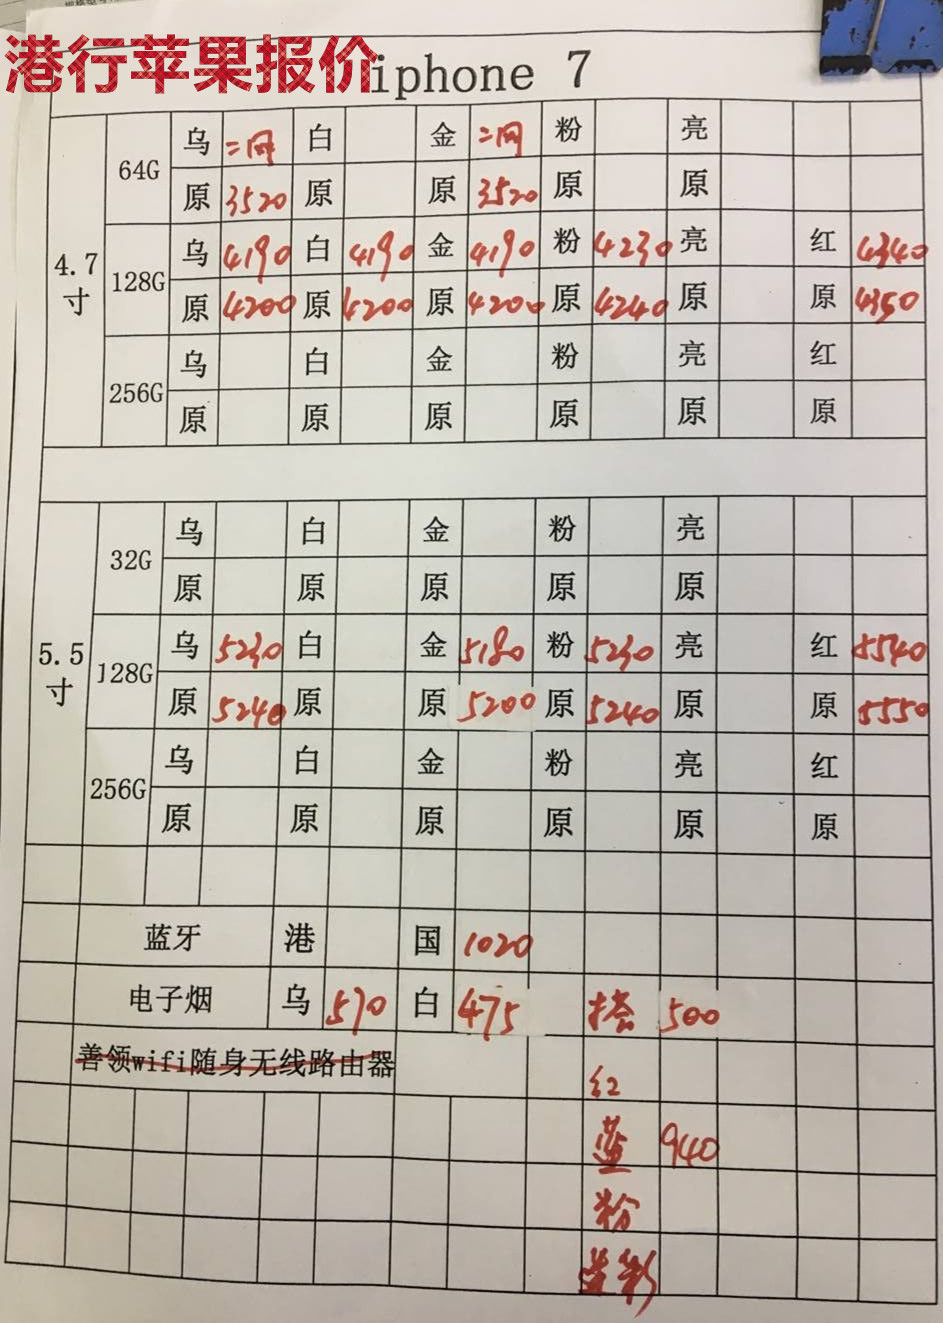 港行苹果报价
iphone 7
4.7寸
64G 乌 二网 白 金 二网 粉 亮
原 3520 原 原 3520 原 原
128G 乌 4190 白 4190 金 4190 粉 4230 亮 红 4340
原 4200 原 4200 原 4200 原 4240 原 原 4350
256G 乌 白 金 粉 亮 红
原 原 原 原 原 原
5.5寸
32G 乌 白 金 粉 亮
原 原 原 原 原
128G 乌 5230 白 金 5180 粉 5230 亮 红 5540
原 5240 原 原 5200 原 5240 原 原 5550
256G 乌 白 金 粉 亮 红
原 原 原 原 原 原
蓝牙 港 国 1020
电子烟 乌 570 白 475 搭 500
善领wifi随身无线路由器
红
蓝 940
粉